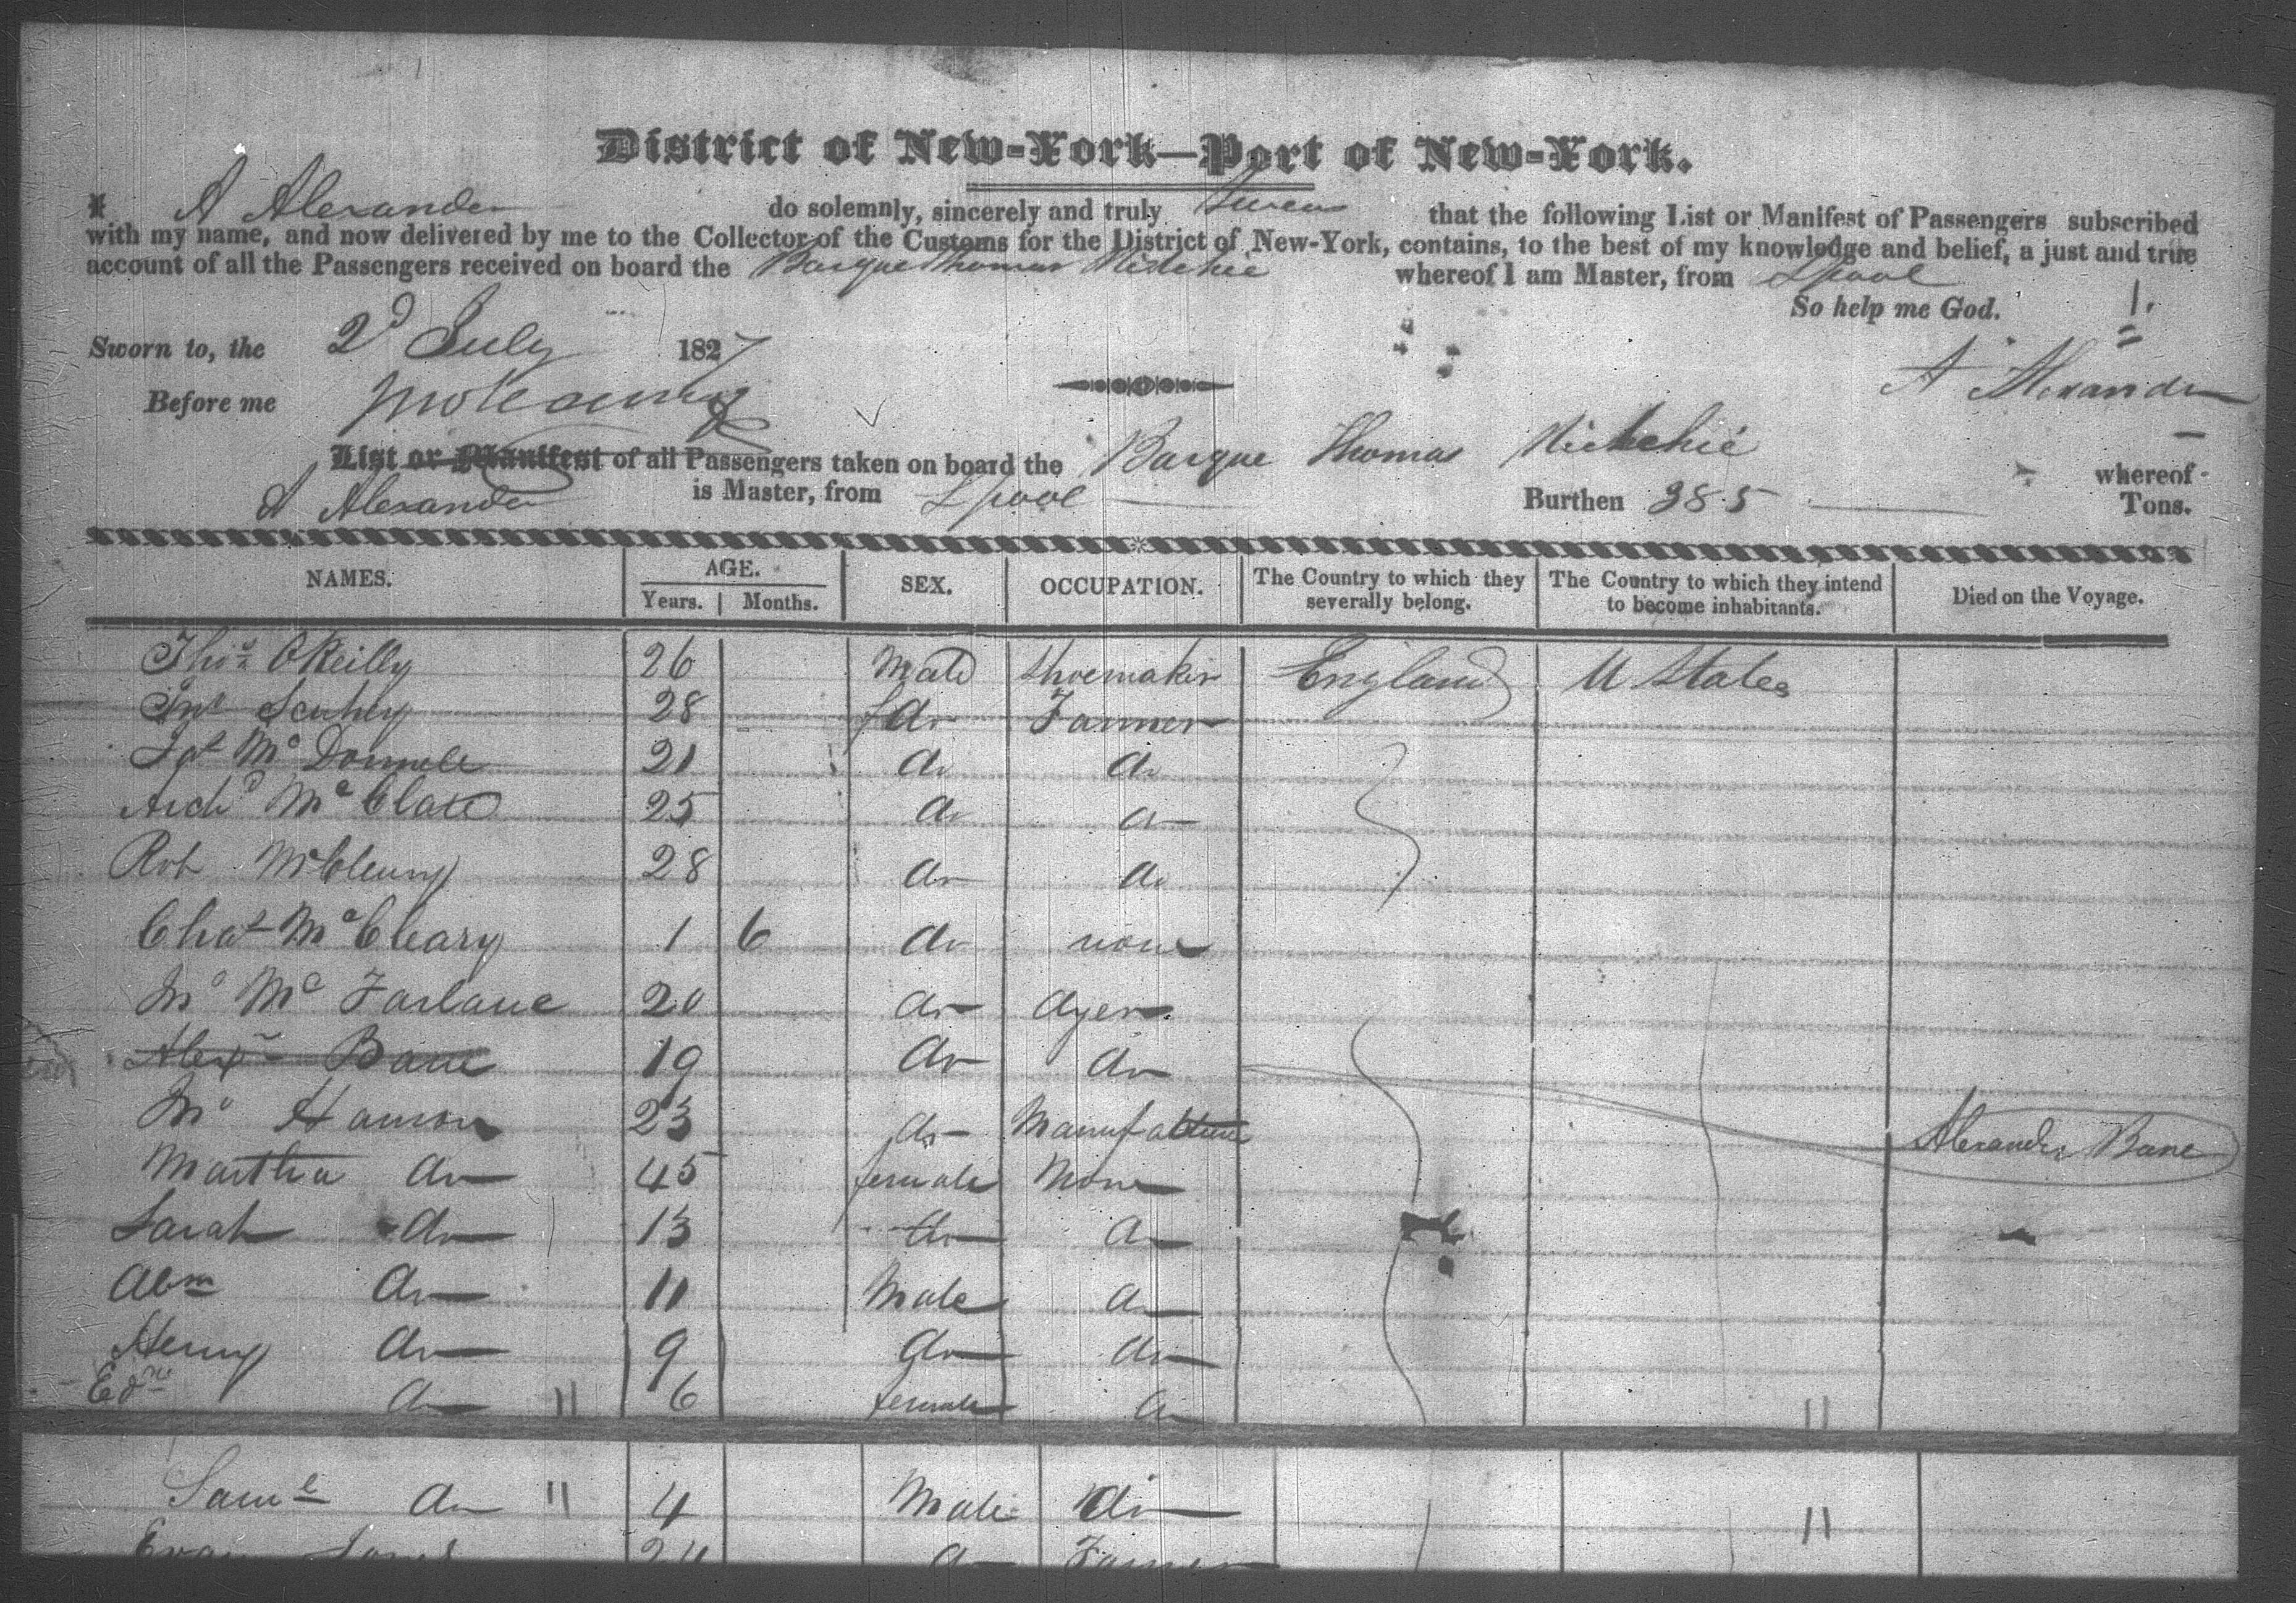 District of New-York—Port of New-York.
I A Alexander do solemnly, sincerely and truly Swear that the following List or Manifest of Passengers subscribed
with my name, and now delivered by me to the Collector of the Customs for the District of New-York, contains, to the best of my knowledge and belief, a just and true
account of all the Passengers received on board the Barque Thomas Ritchie whereof I am Master, from Lpool
So help me God.
Sworn to, the 2d July 1827
A Alexander
Before me
List or Manifest of all Passengers taken on board the Barque Thomas Ritchie whereof
A Alexander is Master, from Lpool Burthen 385 Tons.
NAMES. AGE. Years. Months. SEX. OCCUPATION. The Country to which they severally belong. The Country to which they intend to become inhabitants. Died on the Voyage.
Thos OReilly 26 Male Shoemaker England U States
28 do Farmer
McDonnell 21 do do
Archd McClate 25 do do
Rob McCleary 28 do do
Chas McCleary 1 6 do none
Mc Farlane 20 do dyer
Alexr Bane 19 do do
23 do Manufacturer Alexander Bane
Martha do 45 female None
Sarah do 13 do do
Abm do 11 Male do
Henry do 9 do do
Edw do 11 6 female do 11
Saml do 11 4 Male do 11
Evan Jones 24 do Farmer